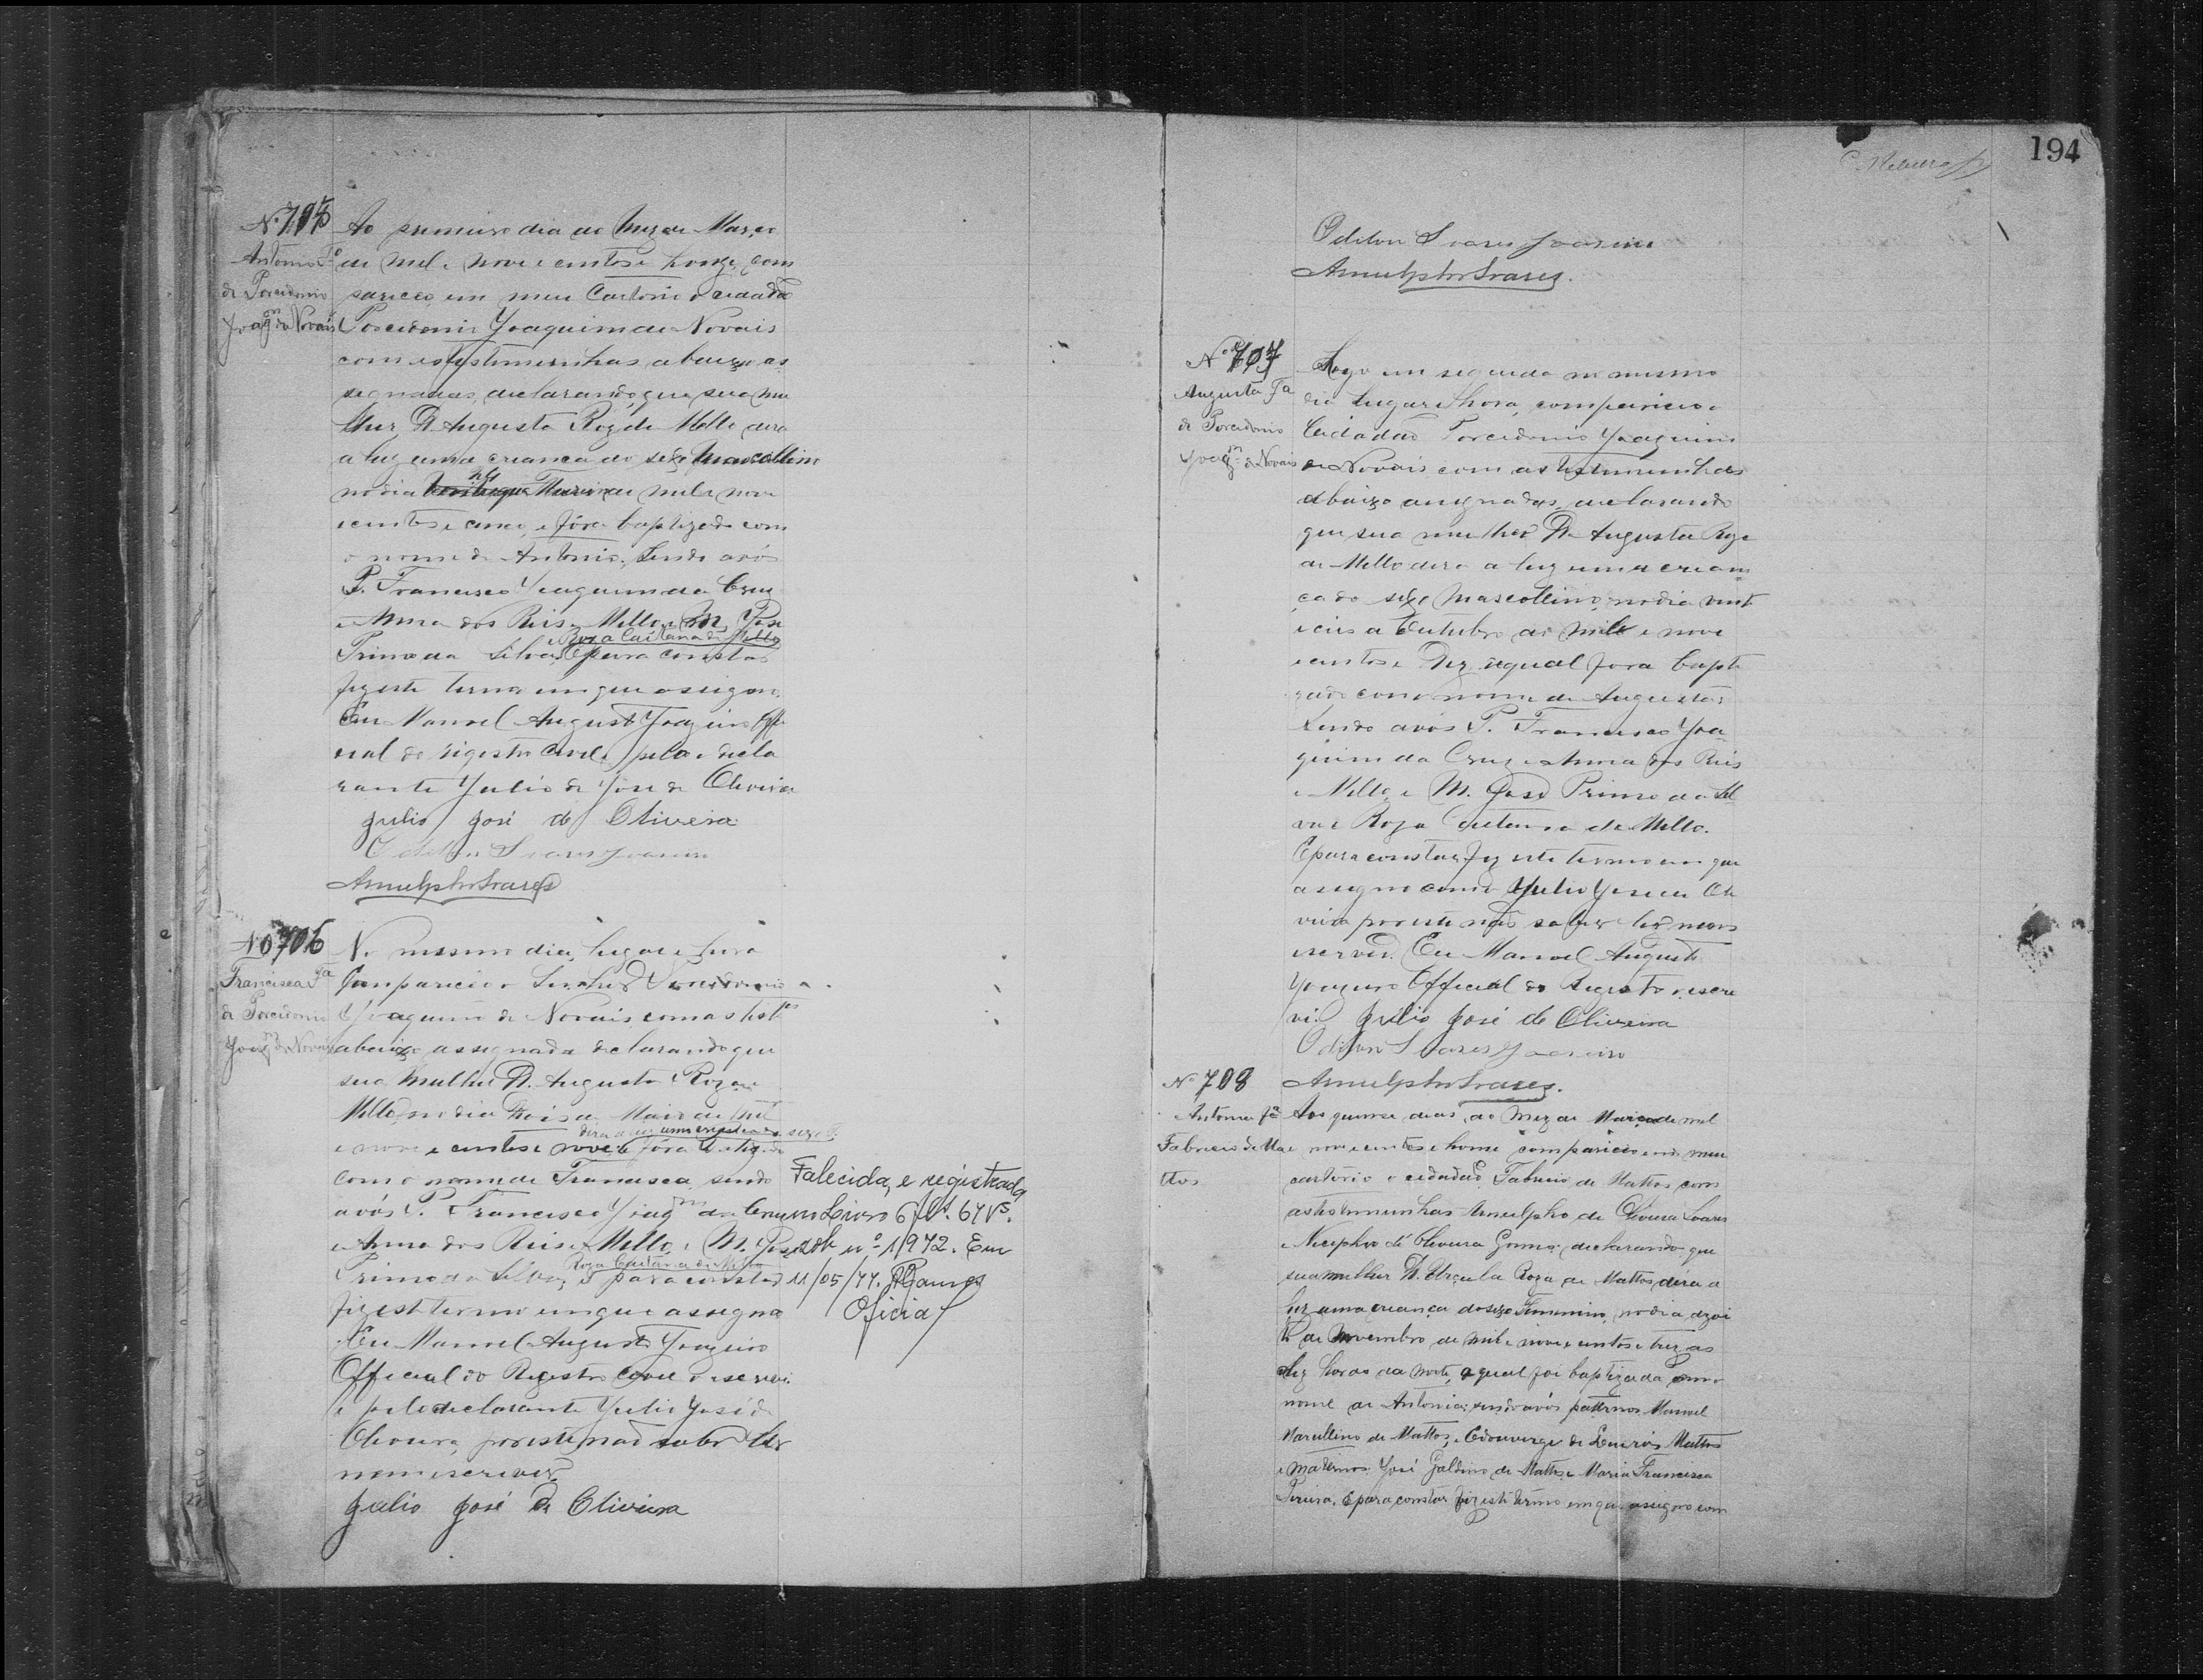 194
Nº 705
Antonio Fº
de Porcidonio
Joaqm de Novais
Ao primeiro dia do mez de Março
de mil e nove centos e honze, com
pareceo em meu Cartorio o cidadão
Porcidonio Joaquim de Novais
com as testimunhas abaixo as
segnadas, declarando que sua mu
lher D. Augusta Roza de Mello, dera
a luz uma crianca do sexo Mascollino
no dia de mil e nove
centos e cinco, e fôra baptizado com
o nome de Antonio, sendo avós
P. Francisco Joaquim da Cruz
e Anna dos Reis e Mello e M. José
e Roza Caitana de Mello
Primo da Silva, E para constar
fiz este termo em que assigno.
Eu Manoel Augusto Joazeiro Offi
cial do rigistro Civel, e pelo decla
rante Julio de José de Oliveira
Julio José de Oliveira
Odilon Soares Joazeiro
Arnulpho Soares
Nº 706
Francisca Fª
de Porcidonio
Joaqm de Novais
No mesmo dia, lugar e hora
Compareceo o Senhor Porcidonio
Joaquim de Novais com as testas
abaixo assignada declarando que
sua mulher D. Augusta Roza de
Mello, no dia trois de Maio de mil
dera a luz uma crianca do sexo F.
e nove centos e nove e fôra batizada
com o nome de Francisca, sendo
avós P. Francisco Joaqm da Cruz
e Anna dos Reis e Mello, e M. José
Roza Caitana de Mello
Primo da Silva, E para constar
fiz este termo em que assigno
Eu Manoel Augusto Joazeiro
Official do Registro Civel o escrevi
e pelo declarante Julio José de
Oliveira, por este não saber ler
nem escrever.
Julio José de Oliveira
Falecida, e registrada
no Livro 6 fls. 64 Vs.
sob nº 1972. Em
11/05/77. RGaunes
Oficial
Odilon Soares Joazeiro
Arnulpho Soares.
Nº 707
Augusta Fª
de Porcidonio
Joaqm de Novais
Logo em seguida no mesmo
dia lugar e hora, compareceo o
Cidadão Porcidonio Joaquim
de Novais com as testimunhas
abaixo assignadas, declarando
que sua mulher D. Augusta Roza
de Mello dera a luz uma crian
ça do sexo Mascollino, no dia vinte
e ceis de Outubro de mil e nove
centos e Dez, o qual fora bapti
zado com o nome de Augusto;
Sendo avós P. Francisco Joa
quim da Cruz e Anna dos Reis
e Mello, e M. José Primo da Sil
va e Roza Caetana de Mello.
E para constar fiz este termo em que
assigno com o Julio José de Oli
veira por este não saber ler nem
escrever. Eu Manoel Augusto
Joazeiro Official do Registro o escre
vi. Julio José de Oliveira
Odilon Soares Joazeiro
Arnulpho Soares.
Nº 708
Antonia fª
Fabricio de Ma
ttos
Aos quinse dias do mez de Março de mil
e nove centos e honse compareceo em meu
cartorio o cidadão Fabricio de Mattos com
as testemunhas Arnulpho de Oliveira Soares
e Nicephro de Oliveira Gomes; declarando que
sua mulher D. Urçula Roza de Mattos, dera a
luz uma criança do sexo Femenino, no dia dezoi
to de Novembro de mil e nove centos e trez as
dez horas da noite, a qual foi baptizada com o
nome de Antonia; sendo avós paternos Manoel
Marcellino de Mattos, e Edouverge de Mattos
e maternos José Galdino de Mattos e Maria Francisca
Pereira. E para constar fiz este termo em que assigno com